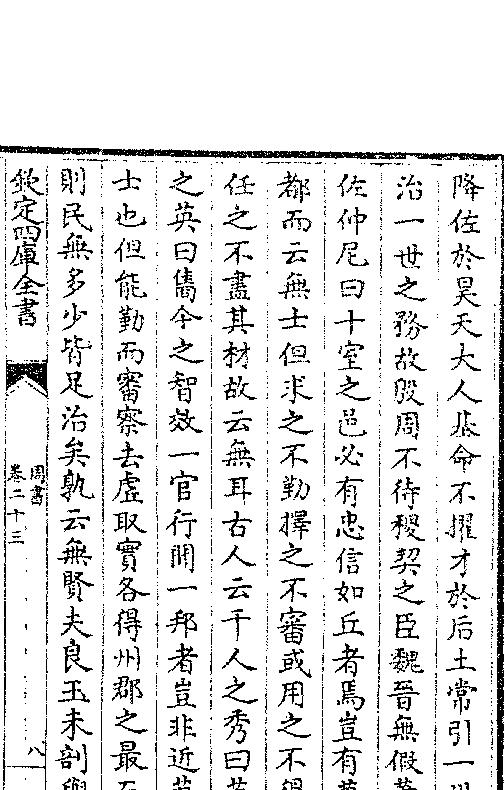 降佐於昊天大人基命不擢才於后土常引一世
治一世之務故殷周不待稷契之臣魏晉無假蕭
佐仲尼曰十室之邑必有忠信如丘者焉豈有萬
都而云無士但求之不勤擇之不審或用之不得
任之不盡其材故云無耳古人云千人之秀曰英
之英曰雋今之智效一官行聞一邦者豈非近英
士也但能勤而審察去虛取實各得州郡之最而
則民無多少皆足治矣孰云無賢夫良玉未剖與
欽定四庫全書
周書
卷二十三
八